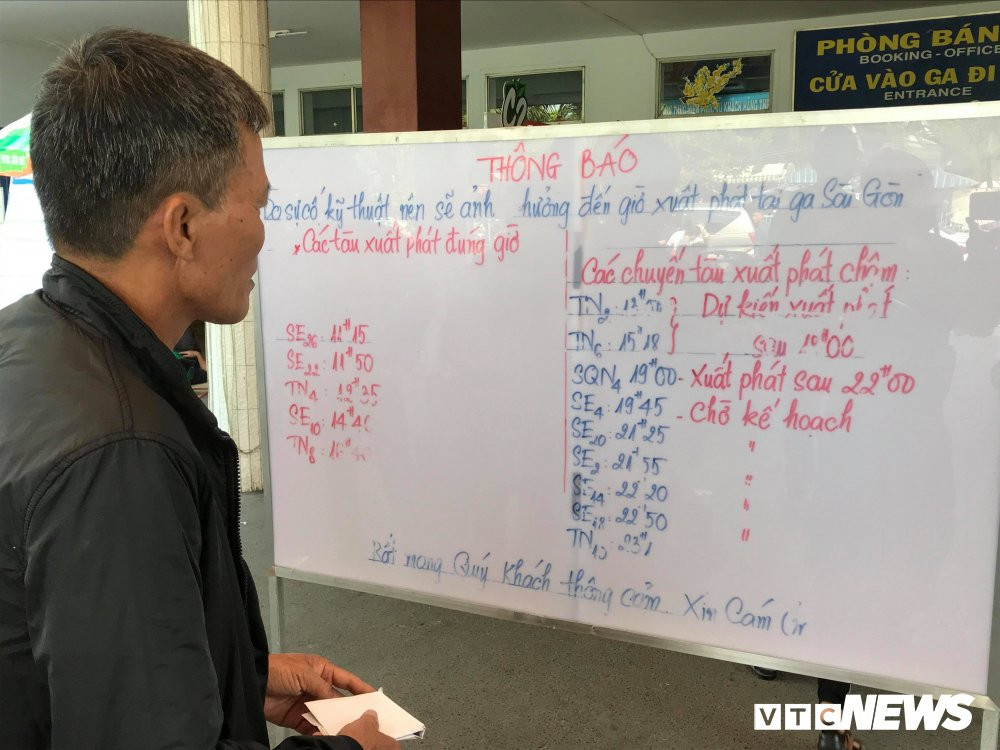 PHÒNG BÁN
BOOKING - OFFICE
CỬA VÀO GA ĐI
ENTRANCE
C2
THÔNG BÁO
Do sự cố kỹ thuật nên sẽ ảnh hưởng đến giờ xuất phát tại ga Sài Gòn
* Các tàu xuất phát đúng giờ
SE26: 11H15
SE22: 11H50
TN4
SE10: 14H4
TN8
Các chuyến tàu xuất phát chậm:
TN2 Dự kiến xuất phát
TN6: 15H18 sau
SQN4 19H00 - Xuất phát sau 22H00
SE4: 19H45 - Chờ kế hoạch
SE20: 21H25 "
SE2: 21H55 "
SE14: 22H20 "
SE18: 22H50 "
Rất mong Quý Khách thông cảm. Xin Cám
VTC NEWS